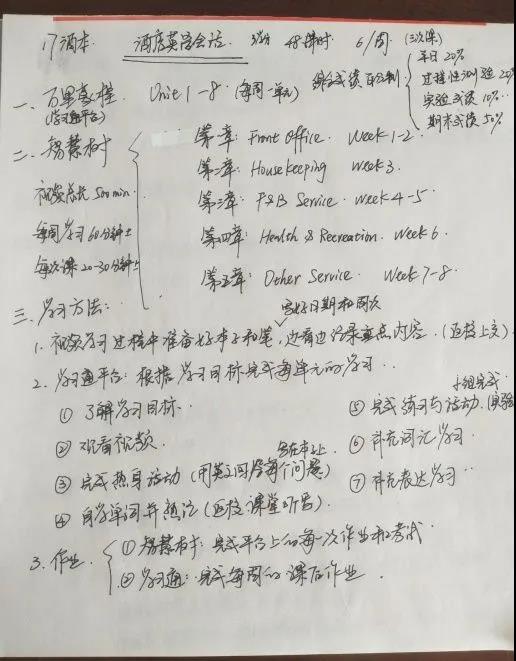 17酒本 酒店英语会话 3学分 48课时 6/周 (三次课)
综合成绩 百分制 平日 20%
过程性测验 20%
实验成绩 10%
期末成绩 50%
一、万里教程 Unit 1-8 (每周一单元)
(学习通平台)
二、智慧树
视频总长 500min
每周学习60分钟±
每次课20-30分钟±
第一章: Front Office. Week 1-2
第二章: Housekeeping Week 3.
第三章: F&B Service. Week 4-5
第四章: Health & Recreation. Week 6.
第五章: Other Service. Week 7-8.
三、学习方法:
写好日期和周次
1. 视频学习过程中准备好本子和笔,边看边记录重点内容. (返校上交)
2. 学习通平台: 根据学习目标完成每单元的学习..
① 了解学习目标.
② 观看视频.
写在本上
③ 完成热身活动 (用英文回答每个问题)
④ 自学单词并熟记 (返校课堂听写).
小组完成
⑤ 完成练习与活动. (实验
⑥ 补充词汇学习.
⑦ 补充表达学习..
3. 作业
① 智慧树: 完成平台上的每一次作业和考试
② 学习通: 完成每周的课后作业.